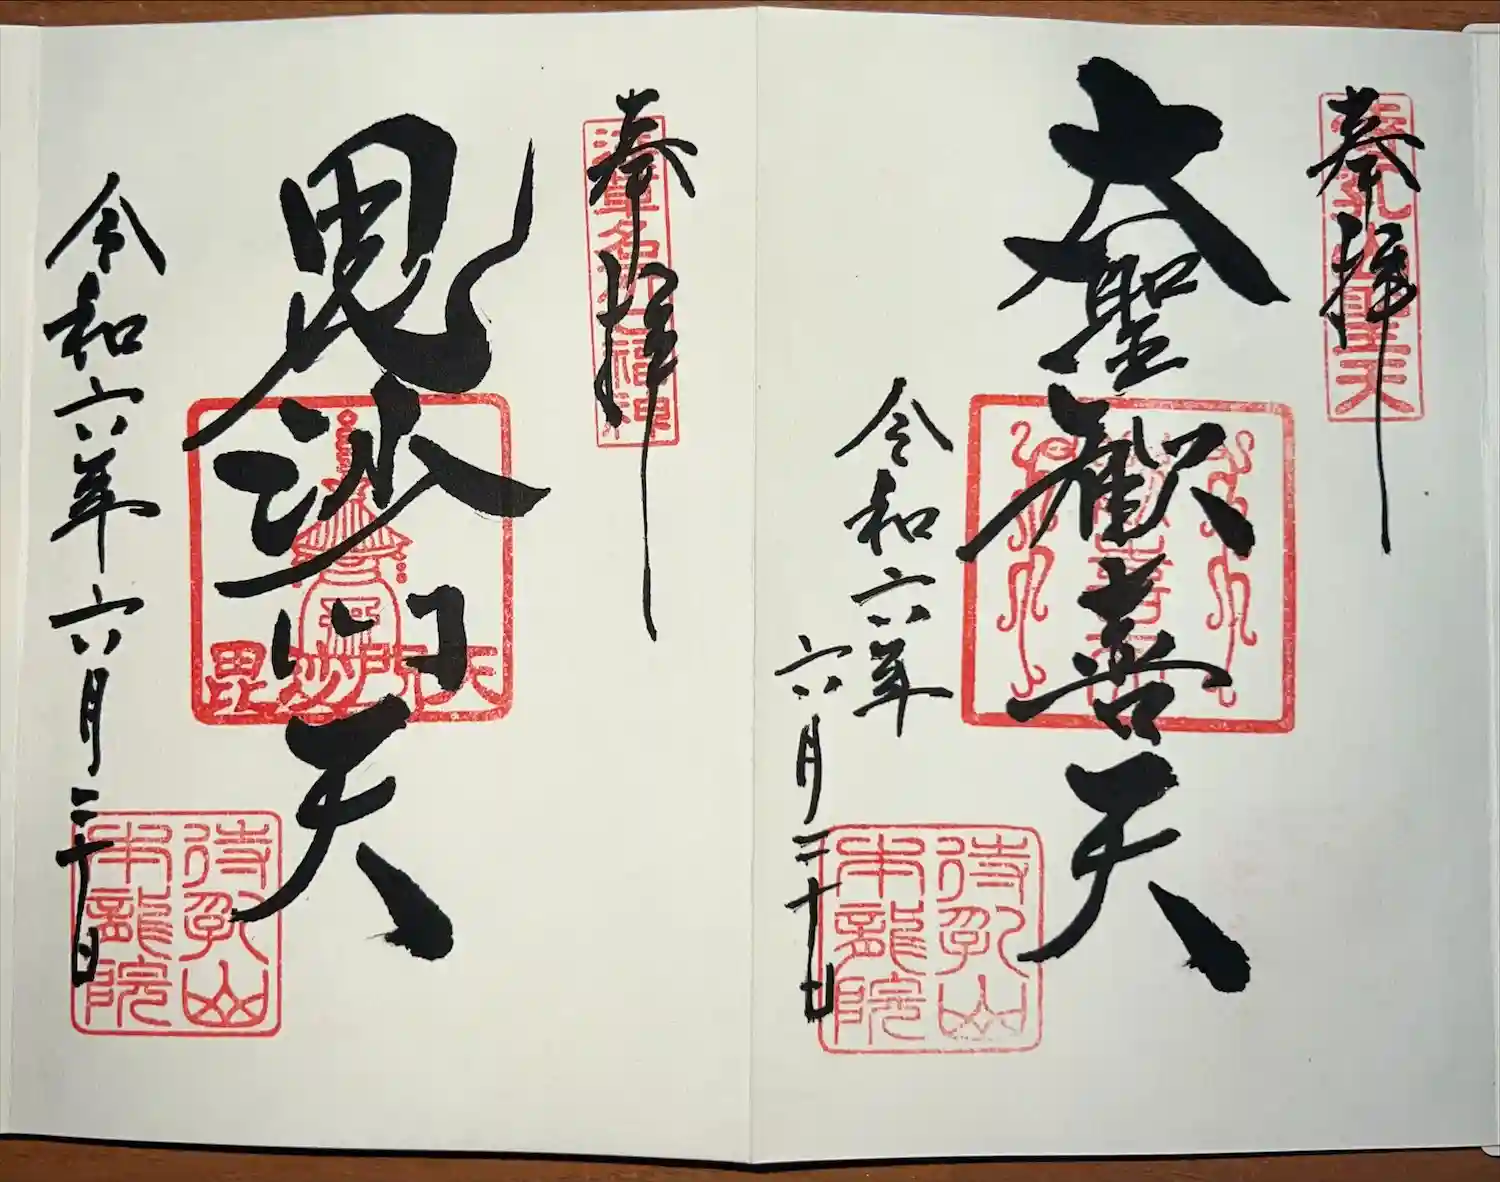 奉拝
待乳山聖天
大聖歓喜天
歓喜天
令和六年
六月二十日
待乳山
本龍院
奉拝
浅草名所七福神
毘沙門天
毘沙門天
令和六年六月二十日
待乳山
本龍院